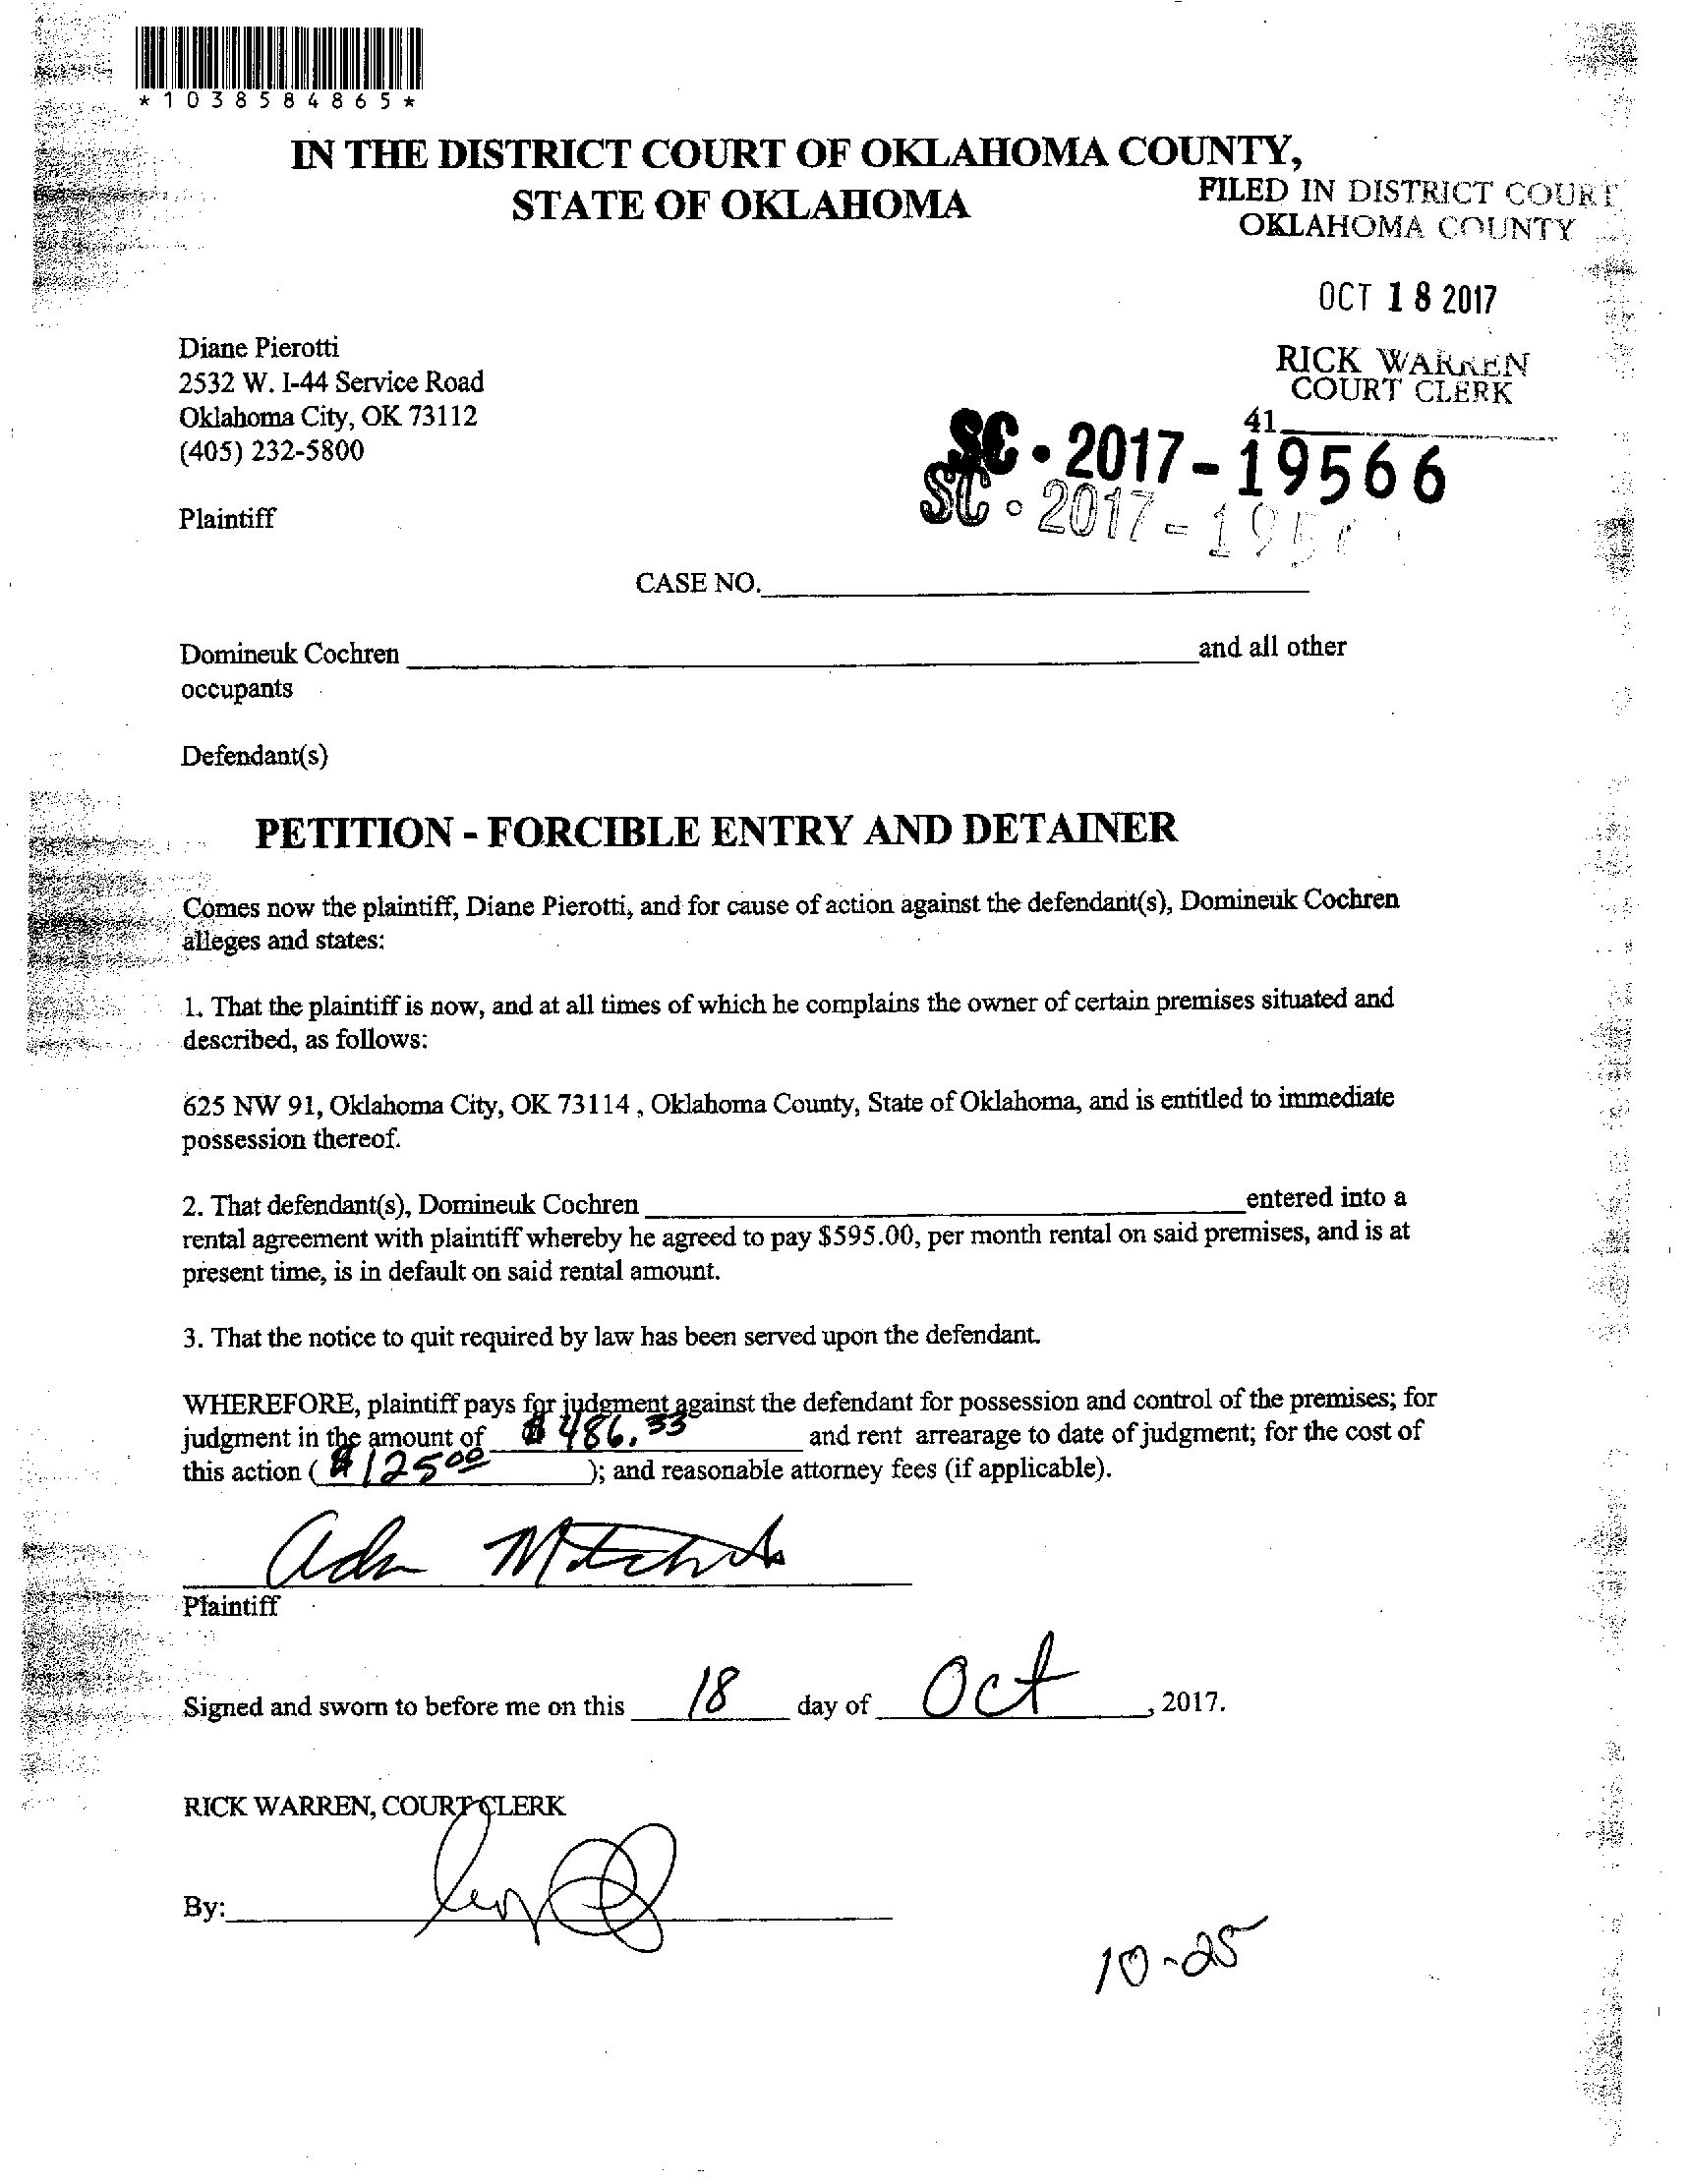 *1038584865*
IN THE DISTRICT COURT OF OKLAHOMA COUNTY,
STATE OF OKLAHOMA
FILED IN DISTRICT COURT
OKLAHOMA COUNTY
OCT 18 2017
RICK WARREN
COURT CLERK
41
Diane Pierotti
2532 W. I-44 Service Road
Oklahoma City, OK 73112
(405) 232-5800
SC - 2017 - 19566
SC - 2017 - 195
Plaintiff
CASE NO.
Domineuk Cochren and all other
occupants
Defendant(s)
PETITION - FORCIBLE ENTRY AND DETAINER
Comes now the plaintiff, Diane Pierotti, and for cause of action against the defendant(s), Domineuk Cochren
alleges and states:
1. That the plaintiff is now, and at all times of which he complains the owner of certain premises situated and
described, as follows:
625 NW 91, Oklahoma City, OK 73114 , Oklahoma County, State of Oklahoma, and is entitled to immediate
possession thereof.
2. That defendant(s), Domineuk Cochren entered into a
rental agreement with plaintiff whereby he agreed to pay $595.00, per month rental on said premises, and is at
present time, is in default on said rental amount.
3. That the notice to quit required by law has been served upon the defendant.
WHEREFORE, plaintiff pays for judgment against the defendant for possession and control of the premises; for
judgment in the amount of $486.33 and rent arrearage to date of judgment; for the cost of
this action ( $125.00 ); and reasonable attorney fees (if applicable).
Plaintiff
Signed and sworn to before me on this 18 day of Oct , 2017.
RICK WARREN, COURT CLERK
By:
10-25